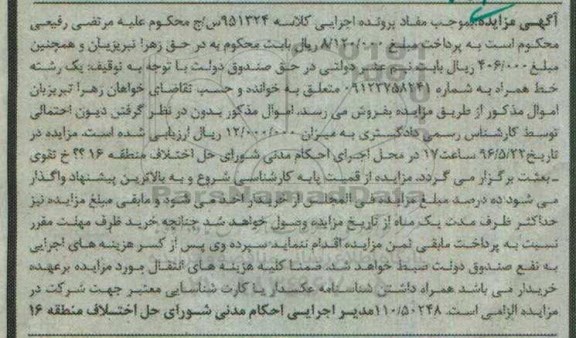 آگهی مزایده: بموجب مفاد پرونده اجرایی کلاسه ۹۵۱۳۲۴س/ج محکوم علیه مرتضی رفیعی
محکوم است به پرداخت مبلغ ۸/۱۲۰/۰۰۰ ریال بابت محکوم به در حق زهرا تبریزیان و همچنین
مبلغ ۴۰۶/۰۰۰ ریال بابت نیم عشر دولتی در حق صندوق دولت با توجه به توقیف: یک رشته
خط همراه به شماره ۰۹۱۲۲۷۵۸۱۲۴۱ متعلق به خوانده و حسب تقاضای خواهان زهرا تبریزیان
اموال مذکور از طریق مزایده بفروش می رسد. اموال مذکور بدون در نظر گرفتن دیون احتمالی
توسط کارشناس رسمی دادگستری به میزان ۱۲/۰۰۰/۰۰۰ ریال ارزیابی شده است. مزایده در
تاریخ ۹۶/۵/۲۲ ساعت ۱۷ در محل اجرای احکام مدنی شورای حل اختلاف منطقه ۱۶ ؟؟ خ تقوی
ـ بعثت برگزار می گردد. مزایده از قیمت پایه کارشناسی شروع و به بالاترین پیشنهاد واگذار
می شود ده درصد مبلغ مزایده فی المجلس از خریدار اخذ می شود و مابقی مبلغ مزایده نیز
حداکثر ظرف مدت یک ماه از تاریخ مزایده وصول خواهد شد چنانچه خرید ظرف مهلت مقرر
نسبت به پرداخت مابقی ثمن مزایده اقدام ننماید سپرده وی پس از کسر هزینه های اجرایی
به نفع صندوق دولت ضبط خواهد شد. ضمنا کلیه هزینه های انتقال مورد مزایده برعهده
خریدار می باشد همراه داشتن شناسنامه عکسدار یا کارت شناسایی معتبر جهت شرکت در
مزایده الزامی است. ۱۱۰/۵۰۲۴۸ مدیر اجرایی احکام مدنی شورای حل اختلاف منطقه ۱۶